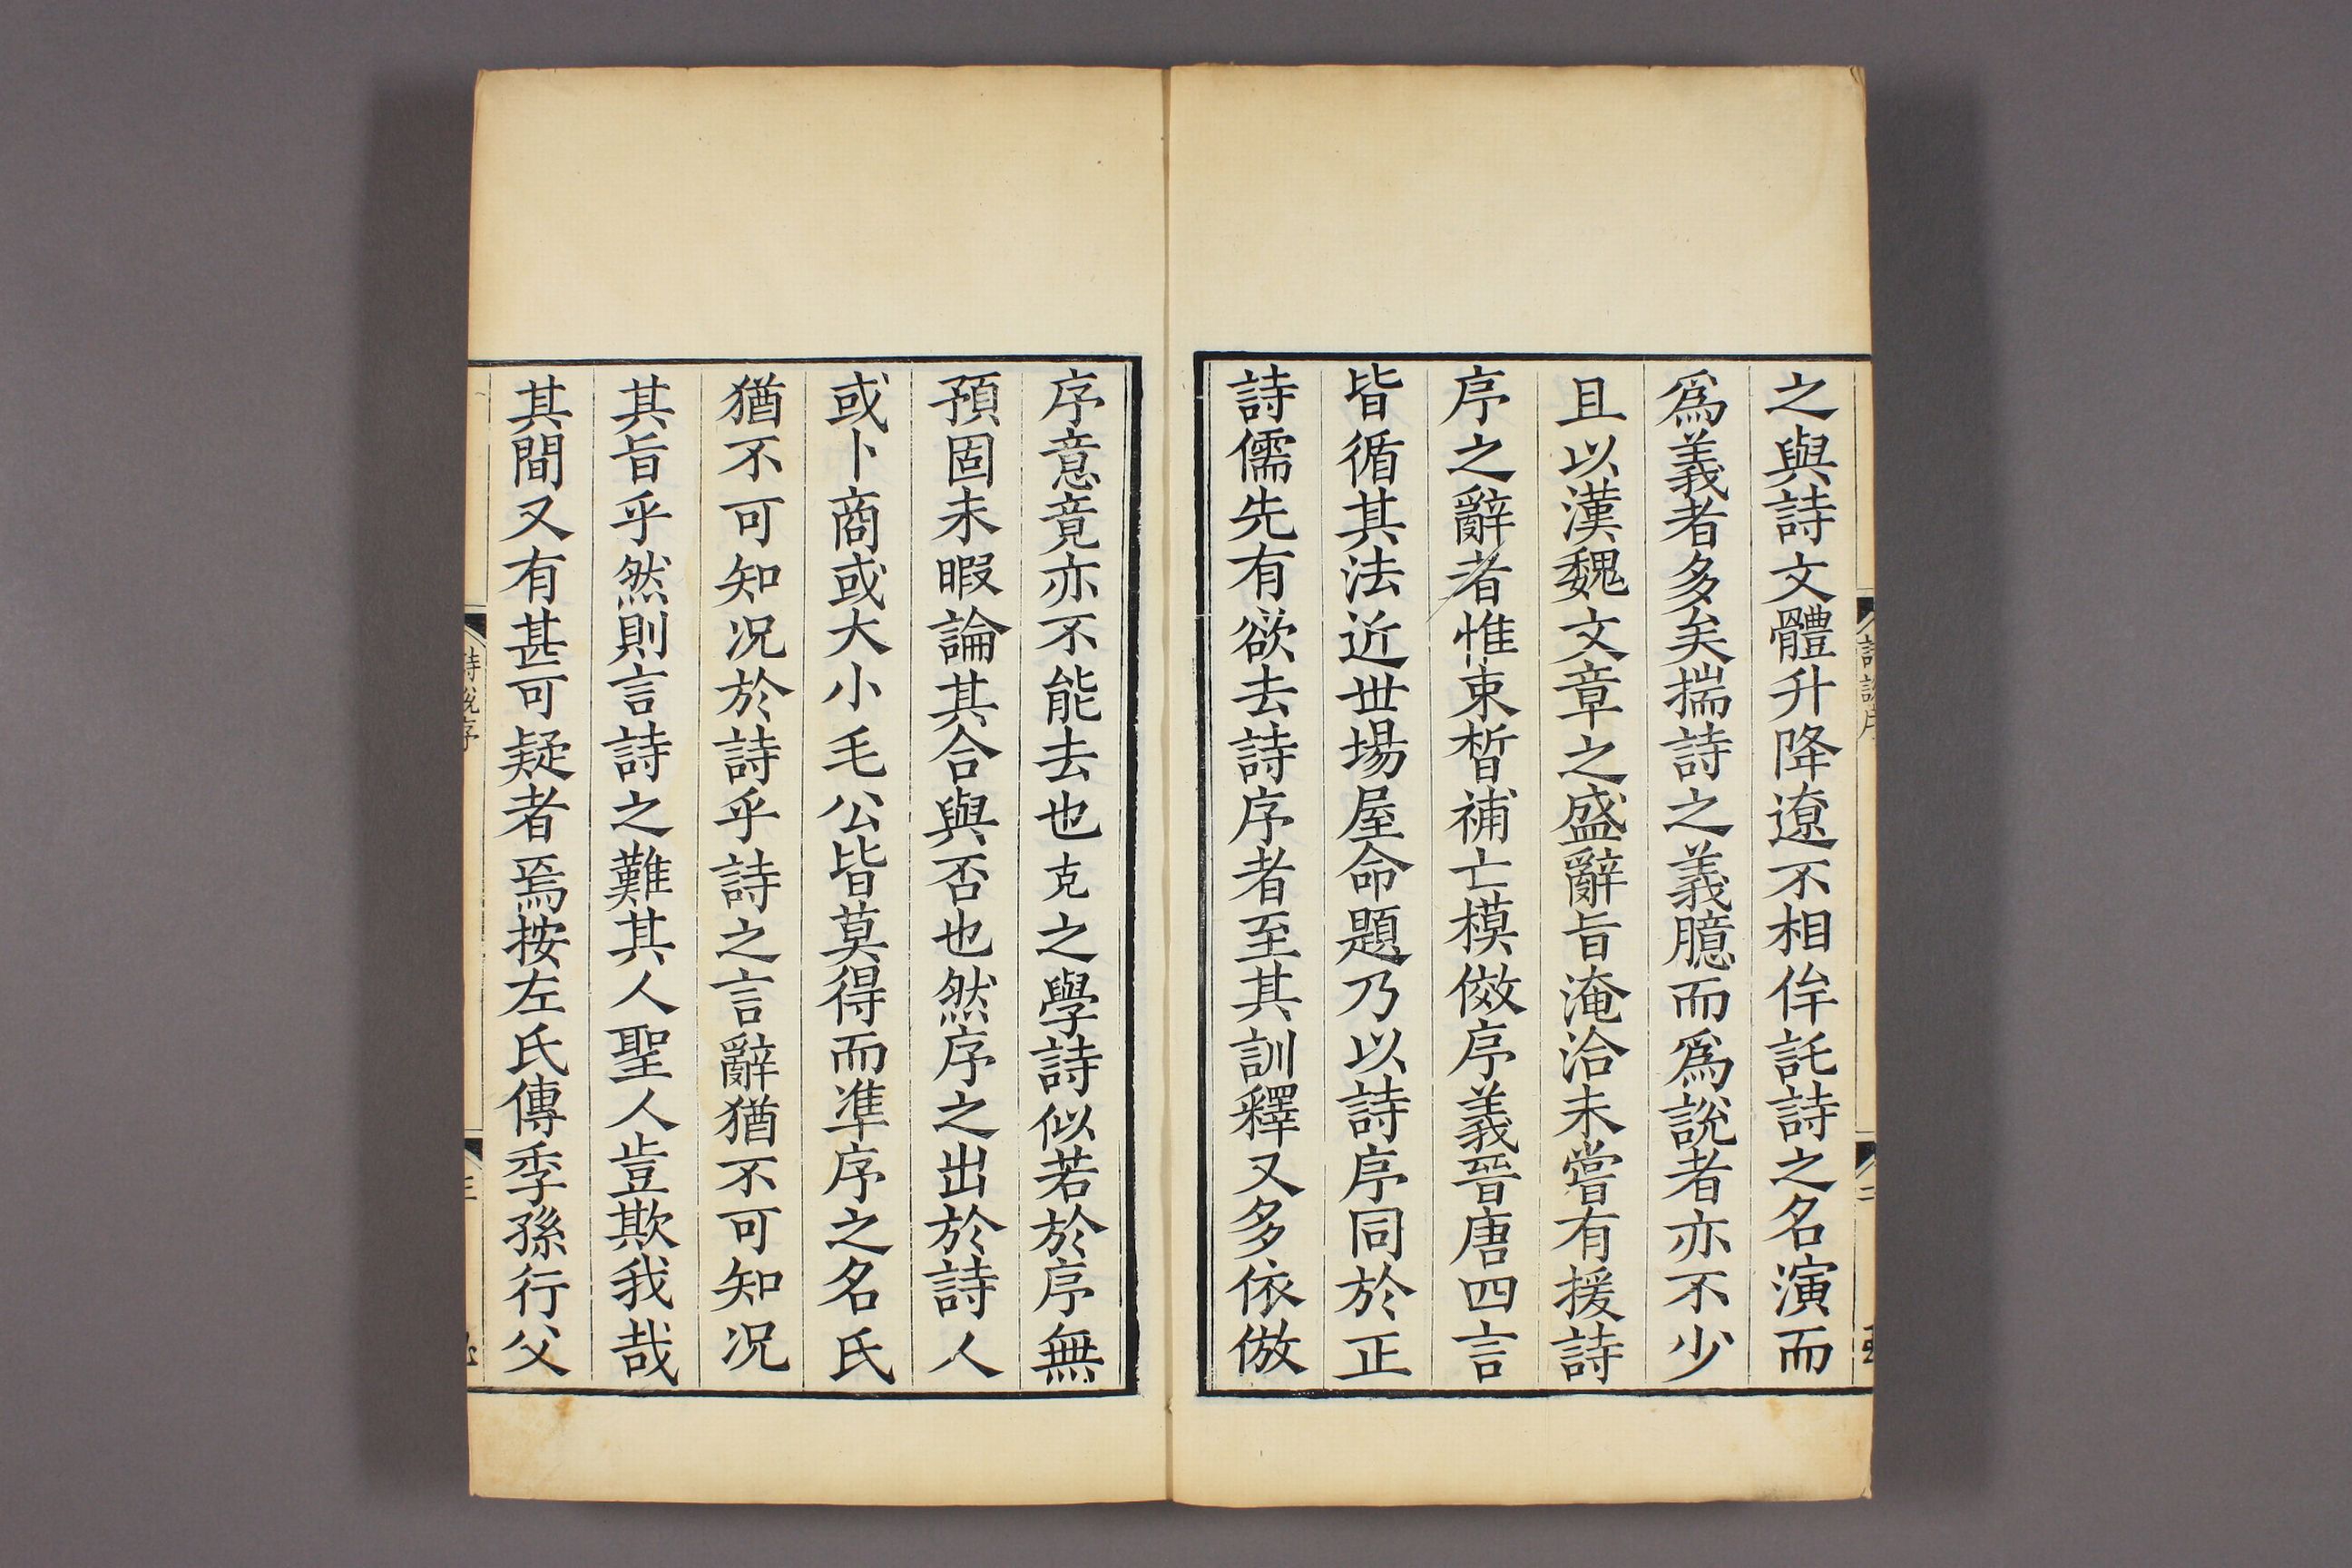 之與詩文體升降遼不相侔託詩之名演而
爲義者多矣揣詩之義臆而爲說者亦不少
且以漢魏文章之盛辭旨淹洽未嘗有援詩
序之辭者惟束晳補亡模倣序義晉唐四言
皆循其法近世場屋命題乃以詩序同於正
詩儒先有欲去詩序者至其訓釋又多依倣
序意竟亦不能去也克之學詩似若於序無
預固未暇論其合與否也然序之出於詩人
或卜商或大小毛公皆莫得而準序之名氏
猶不可知况於詩乎詩之言辭猶不可知况
其旨乎然則言詩之難其人聖人豈欺我哉
其間又有甚可疑者焉按左氏傳季孫行父
詩說序
三